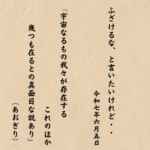 ふざけるな、と言いたいけれど・・
令和七年六月五日
「宇宙なるもの我々が存在する
これのほか
幾つも在るとの真面目な説あり」
（あおぎり）